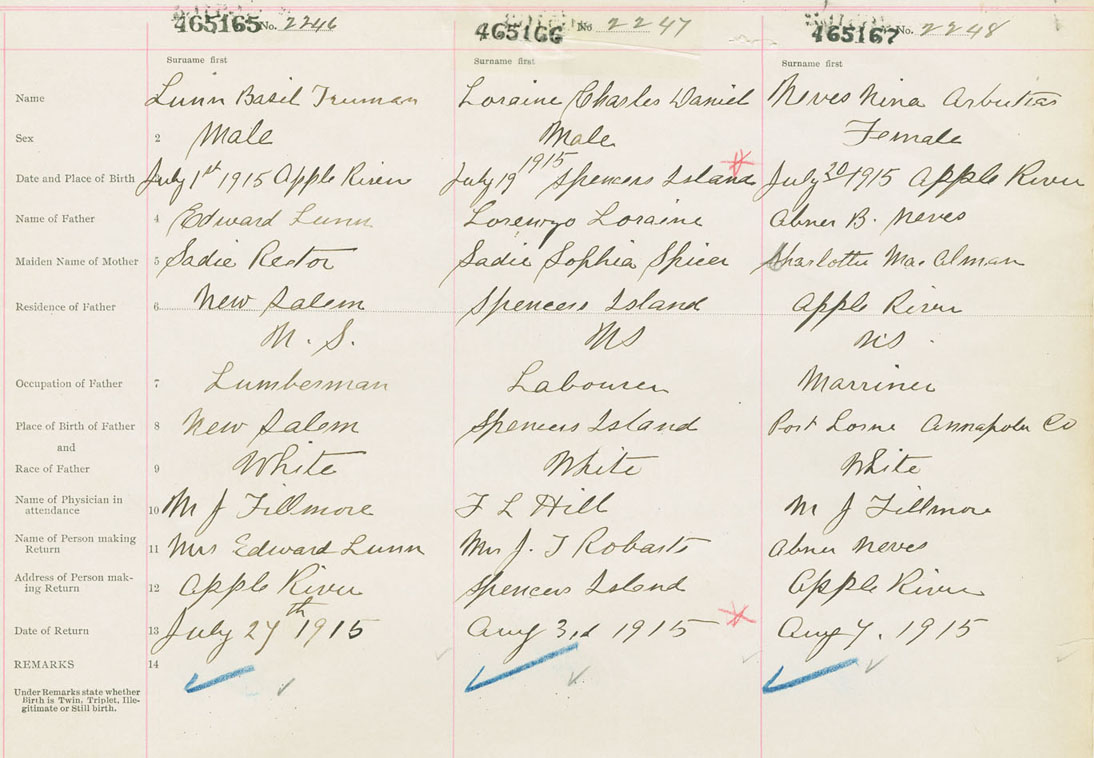 465165 No. 2246
465166 No 2247
465167 No. 2248
Surname first
Surname first
Surname first
Name Lunn Basil Truman Loraine Charles Daniel Neves Nina Arbutias
Sex 2 Male Male Female
Date and Place of Birth July 1st 1915 Apple River July 19 1915 Spencers Island July 20 1915 Apple River
Name of Father 4 Edward Lunn Lorenzo Loraine Abner B. Neves
Maiden Name of Mother 5 Sadie Rector Sadie Sophia Spicer Sharlotte MacAlman
Residence of Father 6 New Salem Spencers Island Apple River
N. S. NS NS.
Occupation of Father 7 Lumberman Labourer Marriner
Place of Birth of Father 8 New Salem Spencers Island Port Lorne Annapolis Co
and
Race of Father 9 White White White
Name of Physician in
attendance 10 M J Fillmore F L Hill M J Fillmore
Name of Person making
Return 11 Mrs Edward Lunn Mrs J. T Robarts Abner Neves
Address of Person mak-
ing Return 12 Apple River Spencers Island Apple River
Date of Return 13 July 27th 1915 Aug 3rd 1915 Aug 7. 1915
REMARKS 14
Under Remarks state whether
Birth is Twin, Triplet, Ille-
gitimate or Still birth.